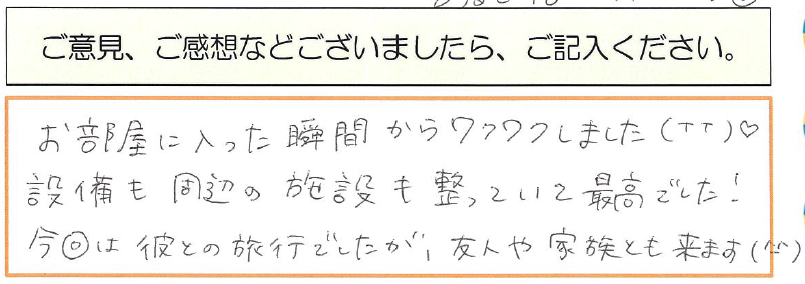 ご意見、ご感想などございましたら、ご記入ください。
お部屋に入った瞬間からワクワクしました(TT)♡
設備も周辺の施設も整っていて最高でした!
今回は彼との旅行でしたが、友人や家族とも来ます(^^)